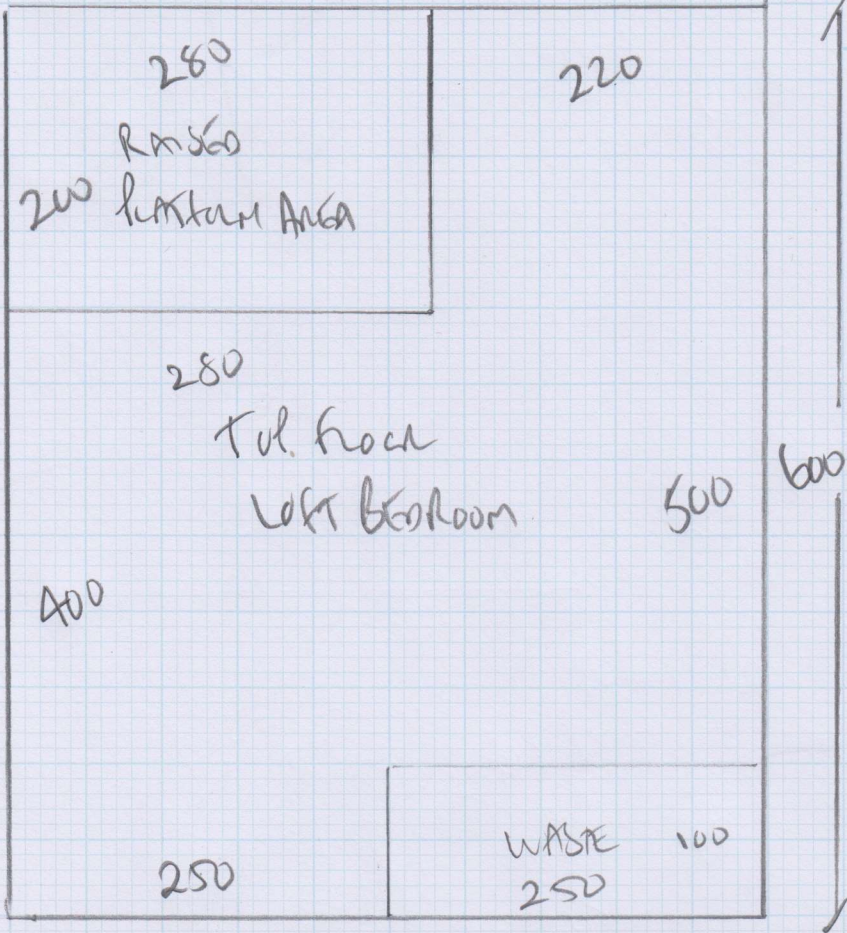 280
220
RAISED
200 PLATFORM AREA
280
TOP. FLOOR
LOFT BEDROOM
500
600
400
WASTE 100
250
250